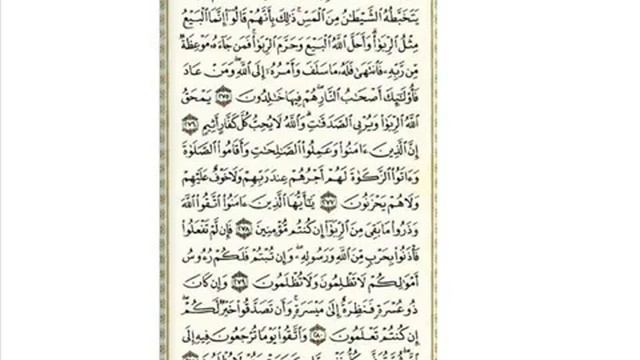 يَتَخَبَّطُهُ ٱلشَّيْطَٰنُ مِنَ ٱلْمَسِّ ۚ ذَٰلِكَ بِأَنَّهُمْ قَالُوٓا۟ إِنَّمَا ٱلْبَيْعُ
مِثْلُ ٱلرِّبَوٰا۟ ۗ وَأَحَلَّ ٱللَّهُ ٱلْبَيْعَ وَحَرَّمَ ٱلرِّبَوٰا۟ ۚ فَمَن جَآءَهُۥ مَوْعِظَةٌ
مِّن رَّبِّهِۦ فَٱنتَهَىٰ فَلَهُۥ مَا سَلَفَ وَأَمْرُهُۥٓ إِلَى ٱللَّهِ ۖ وَمَنْ عَادَ
فَأُو۟لَٰٓئِكَ أَصْحَٰبُ ٱلنَّارِ ۖ هُمْ فِيهَا خَٰلِدُونَ ٢٧٥ يَمْحَقُ
ٱللَّهُ ٱلرِّبَوٰا۟ وَيُرْبِى ٱلصَّدَقَٰتِ ۗ وَٱللَّهُ لَا يُحِبُّ كُلَّ كَفَّارٍ أَثِيمٍ ٢٧٦
إِنَّ ٱلَّذِينَ ءَامَنُوا۟ وَعَمِلُوا۟ ٱلصَّٰلِحَٰتِ وَأَقَامُوا۟ ٱلصَّلَوٰةَ
وَءَاتَوُا۟ ٱلزَّكَوٰةَ لَهُمْ أَجْرُهُمْ عِندَ رَبِّهِمْ وَلَا خَوْفٌ عَلَيْهِمْ
وَلَا هُمْ يَحْزَنُونَ ٢٧٧ يَٰٓأَيُّهَا ٱلَّذِينَ ءَامَنُوا۟ ٱتَّقُوا۟ ٱللَّهَ
وَذَرُوا۟ مَا بَقِىَ مِنَ ٱلرِّبَوٰٓا۟ إِن كُنتُم مُّؤْمِنِينَ ٢٧٨ فَإِن لَّمْ تَفْعَلُوا۟
فَأْذَنُوا۟ بِحَرْبٍ مِّنَ ٱللَّهِ وَرَسُولِهِۦ ۖ وَإِن تُبْتُمْ فَلَكُمْ رُءُوسُ
أَمْوَٰلِكُمْ لَا تَظْلِمُونَ وَلَا تُظْلَمُونَ ٢٧٩ وَإِن كَانَ
ذُو عُسْرَةٍ فَنَظِرَةٌ إِلَىٰ مَيْسَرَةٍ ۚ وَأَن تَصَدَّقُوا۟ خَيْرٌ لَّكُمْ ۖ
إِن كُنتُمْ تَعْلَمُونَ ٢٨٠ وَٱتَّقُوا۟ يَوْمًا تُرْجَعُونَ فِيهِ إِلَى